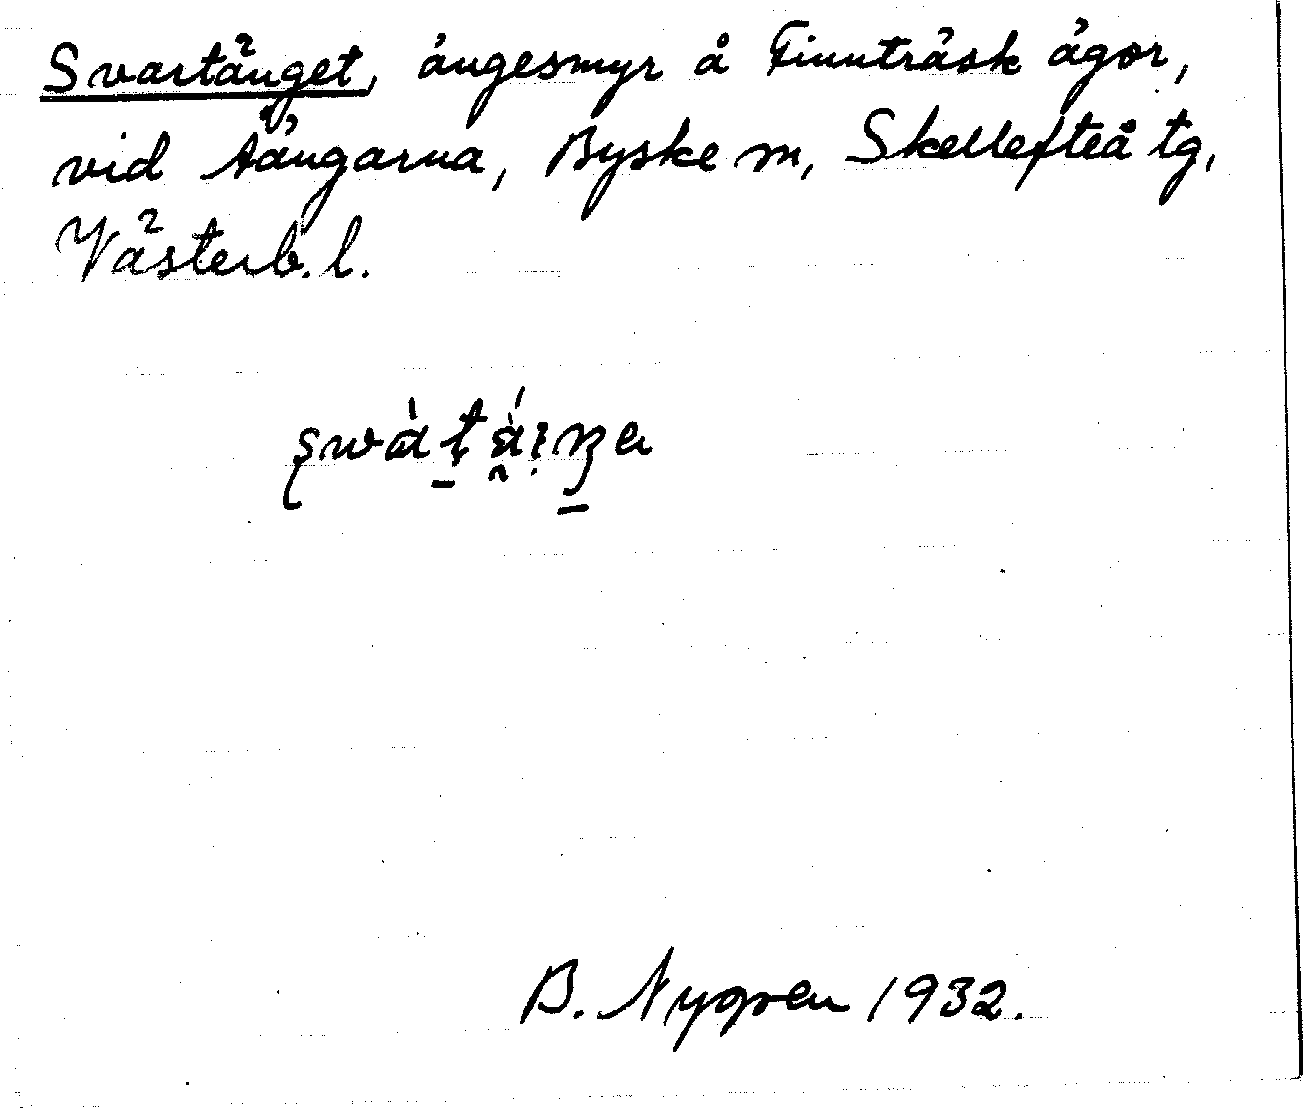 Svartänget, ängesmyr å Finnträsk ägor,
vid Aängarna, Byske sn, Skellefteå tg,
Västerb. l.
B. Nygren 1932.